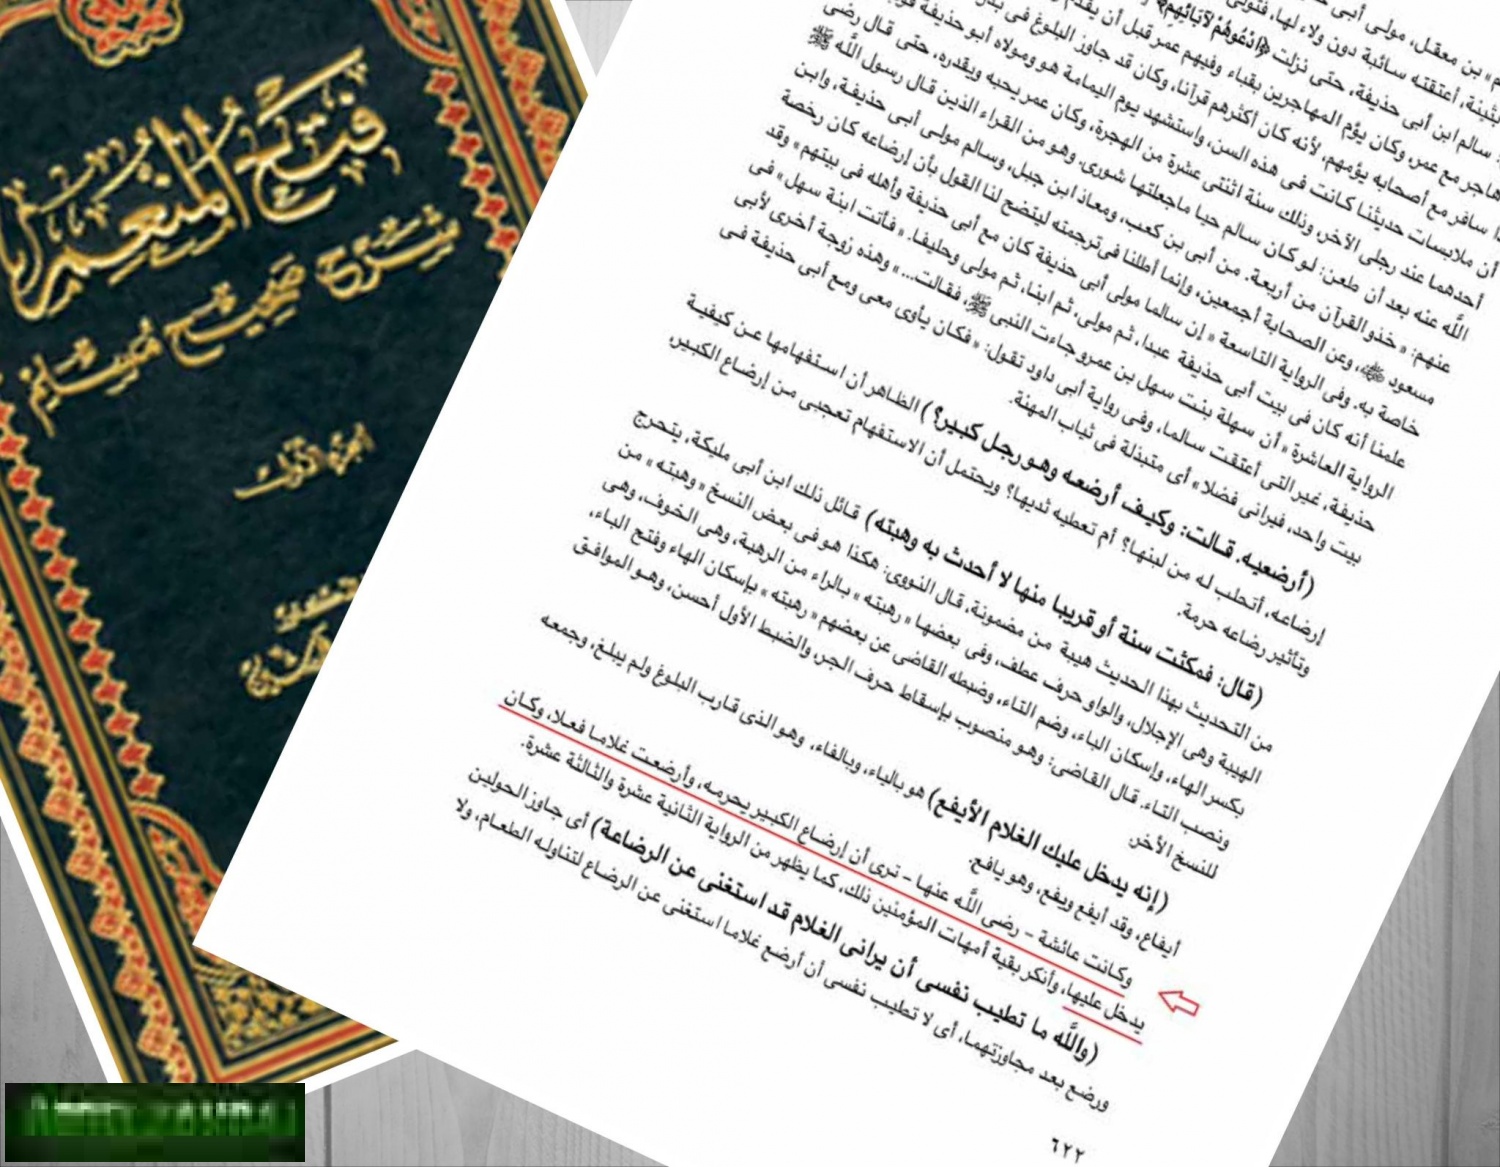 فتح المنعم
شرح صحيح مسلم
م» بن معقل، مولى أبى
بثينة، أعتقته سائبة دون ولاء لها، فتولى
سالم ابن أبى حذيفة، حتى نزلت ﴿ادعوهم لآبائهم﴾
هاجر مع عمر، وكان يؤم المهاجرين بقباء وفيهم عمر قبل أن يقدم
سافر مع أصحابه يؤمهم، لأنه كان أكثرهم قرآنا، وكان قد جاوز البلوغ فى
أن ملابسات حديثنا كانت فى هذه السن، واستشهد يوم اليمامة هو ومولاه أبو حذيفة
أحدهما عند رجلى الآخر، وذلك سنة اثنتى عشرة من الهجرة، وكان عمر يحبه ويقدره، حتى قال رضى
اللَّه عنه بعد أن طعن: لو كان سالم حيا ماجعلتها شورى، وهو من القراء الذين قال رسول اللَّه ﷺ
عنهم: «خذوا القرآن من أربعة. من أبى بن كعب، ومعاذ ابن جبل، وسالم مولى أبى حذيفة، وابن
مسعود ﷺ، وعن الصحابة أجمعين، وإنما أطلنا فى ترجمته ليتضح لنا القول بأن إرضاعه كان رخصة
خاصة به. وفى الرواية التاسعة «إن سالما مولى أبى حذيفة كان مع أبى حذيفة وأهله فى بيتهم» وقد
علمنا أنه كان فى بيت أبى حذيفة عبدا، ثم مولى، ثم ابنا، ثم مولى وحليفا. «فأتت ابنة سهل» فى
الرواية العاشرة «أن سهلة بنت سهل بن عمرو جاءت النبى ﷺ، فقالت...» وهذه زوجة أخرى لأبى
حذيفة، غير التى أعتقت سالما، وفى رواية أبى داود تقول: «فكان يأوى معى ومع أبى حذيفة فى
بيت واحد، فيرانى فضلا» أى متبذلة فى ثياب المهنة.
(أرضعيه. قالت: وكيف أرضعه وهو رجل كبير؟) الظاهر أن استفهامها عن كيفية
إرضاعه، أتحلب له من لبنها؟ أم تعطيه ثديها؟ ويحتمل أن الاستفهام تعجبى من إرضاع الكبير،
وتأثير رضاعه حرمة.
(قال: فمكثت سنة أو قريبا منها لا أحدث به وهبته) قائل ذلك ابن أبى مليكة، يتحرج
من التحديث بهذا الحديث هيبة من مضمونة، قال النووى: هكذا هو فى بعض النسخ «وهبته» من
الهيبة وهى الإجلال، والواو حرف عطف، وفى بعضها «رهبته» بالراء من الرهبة، وهى الخوف، وهى
بكسر الهاء، وإسكان الباء، وضم التاء، وضبطه القاضى عن بعضهم «رهبته» بإسكان الهاء وفتح الباء،
ونصب التاء. قال القاضى: وهو منصوب بإسقاط حرف الجر، والضبط الأول أحسن، وهو الموافق
للنسخ الأخر.
(إنه يدخل عليك الغلام الأيفع) هو بالياء، وبالفاء، وهو الذى قارب البلوغ ولم يبلغ، وجمعه
أيفاع، وقد أيفع ويفع، وهو يافع.
وكانت عائشة - رضى اللَّه عنها - ترى أن إرضاع الكبير يحرمه، وأرضعت غلاما فعلا، وكان
يدخل عليها، وأنكر بقية أمهات المؤمنين ذلك، كما يظهر من الرواية الثانية عشرة والثالثة عشرة.
(واللَّه ما تطيب نفسى أن يرانى الغلام قد استغنى عن الرضاعة) أى جاوز الحولين
ورضع بعد مجاوزتهما، أى لا تطيب نفسى أن أرضع غلاما استغنى عن الرضاع لتناوله الطعام، ولا
٦٢٢